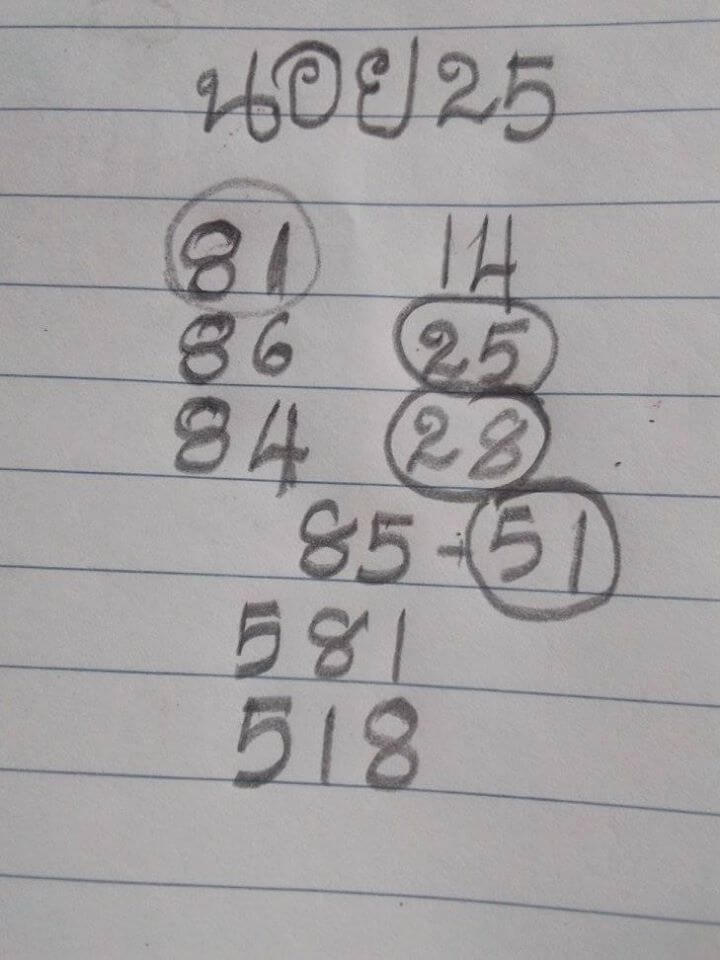 นอย25
81 14
86 25
84 28
85-51
581
518